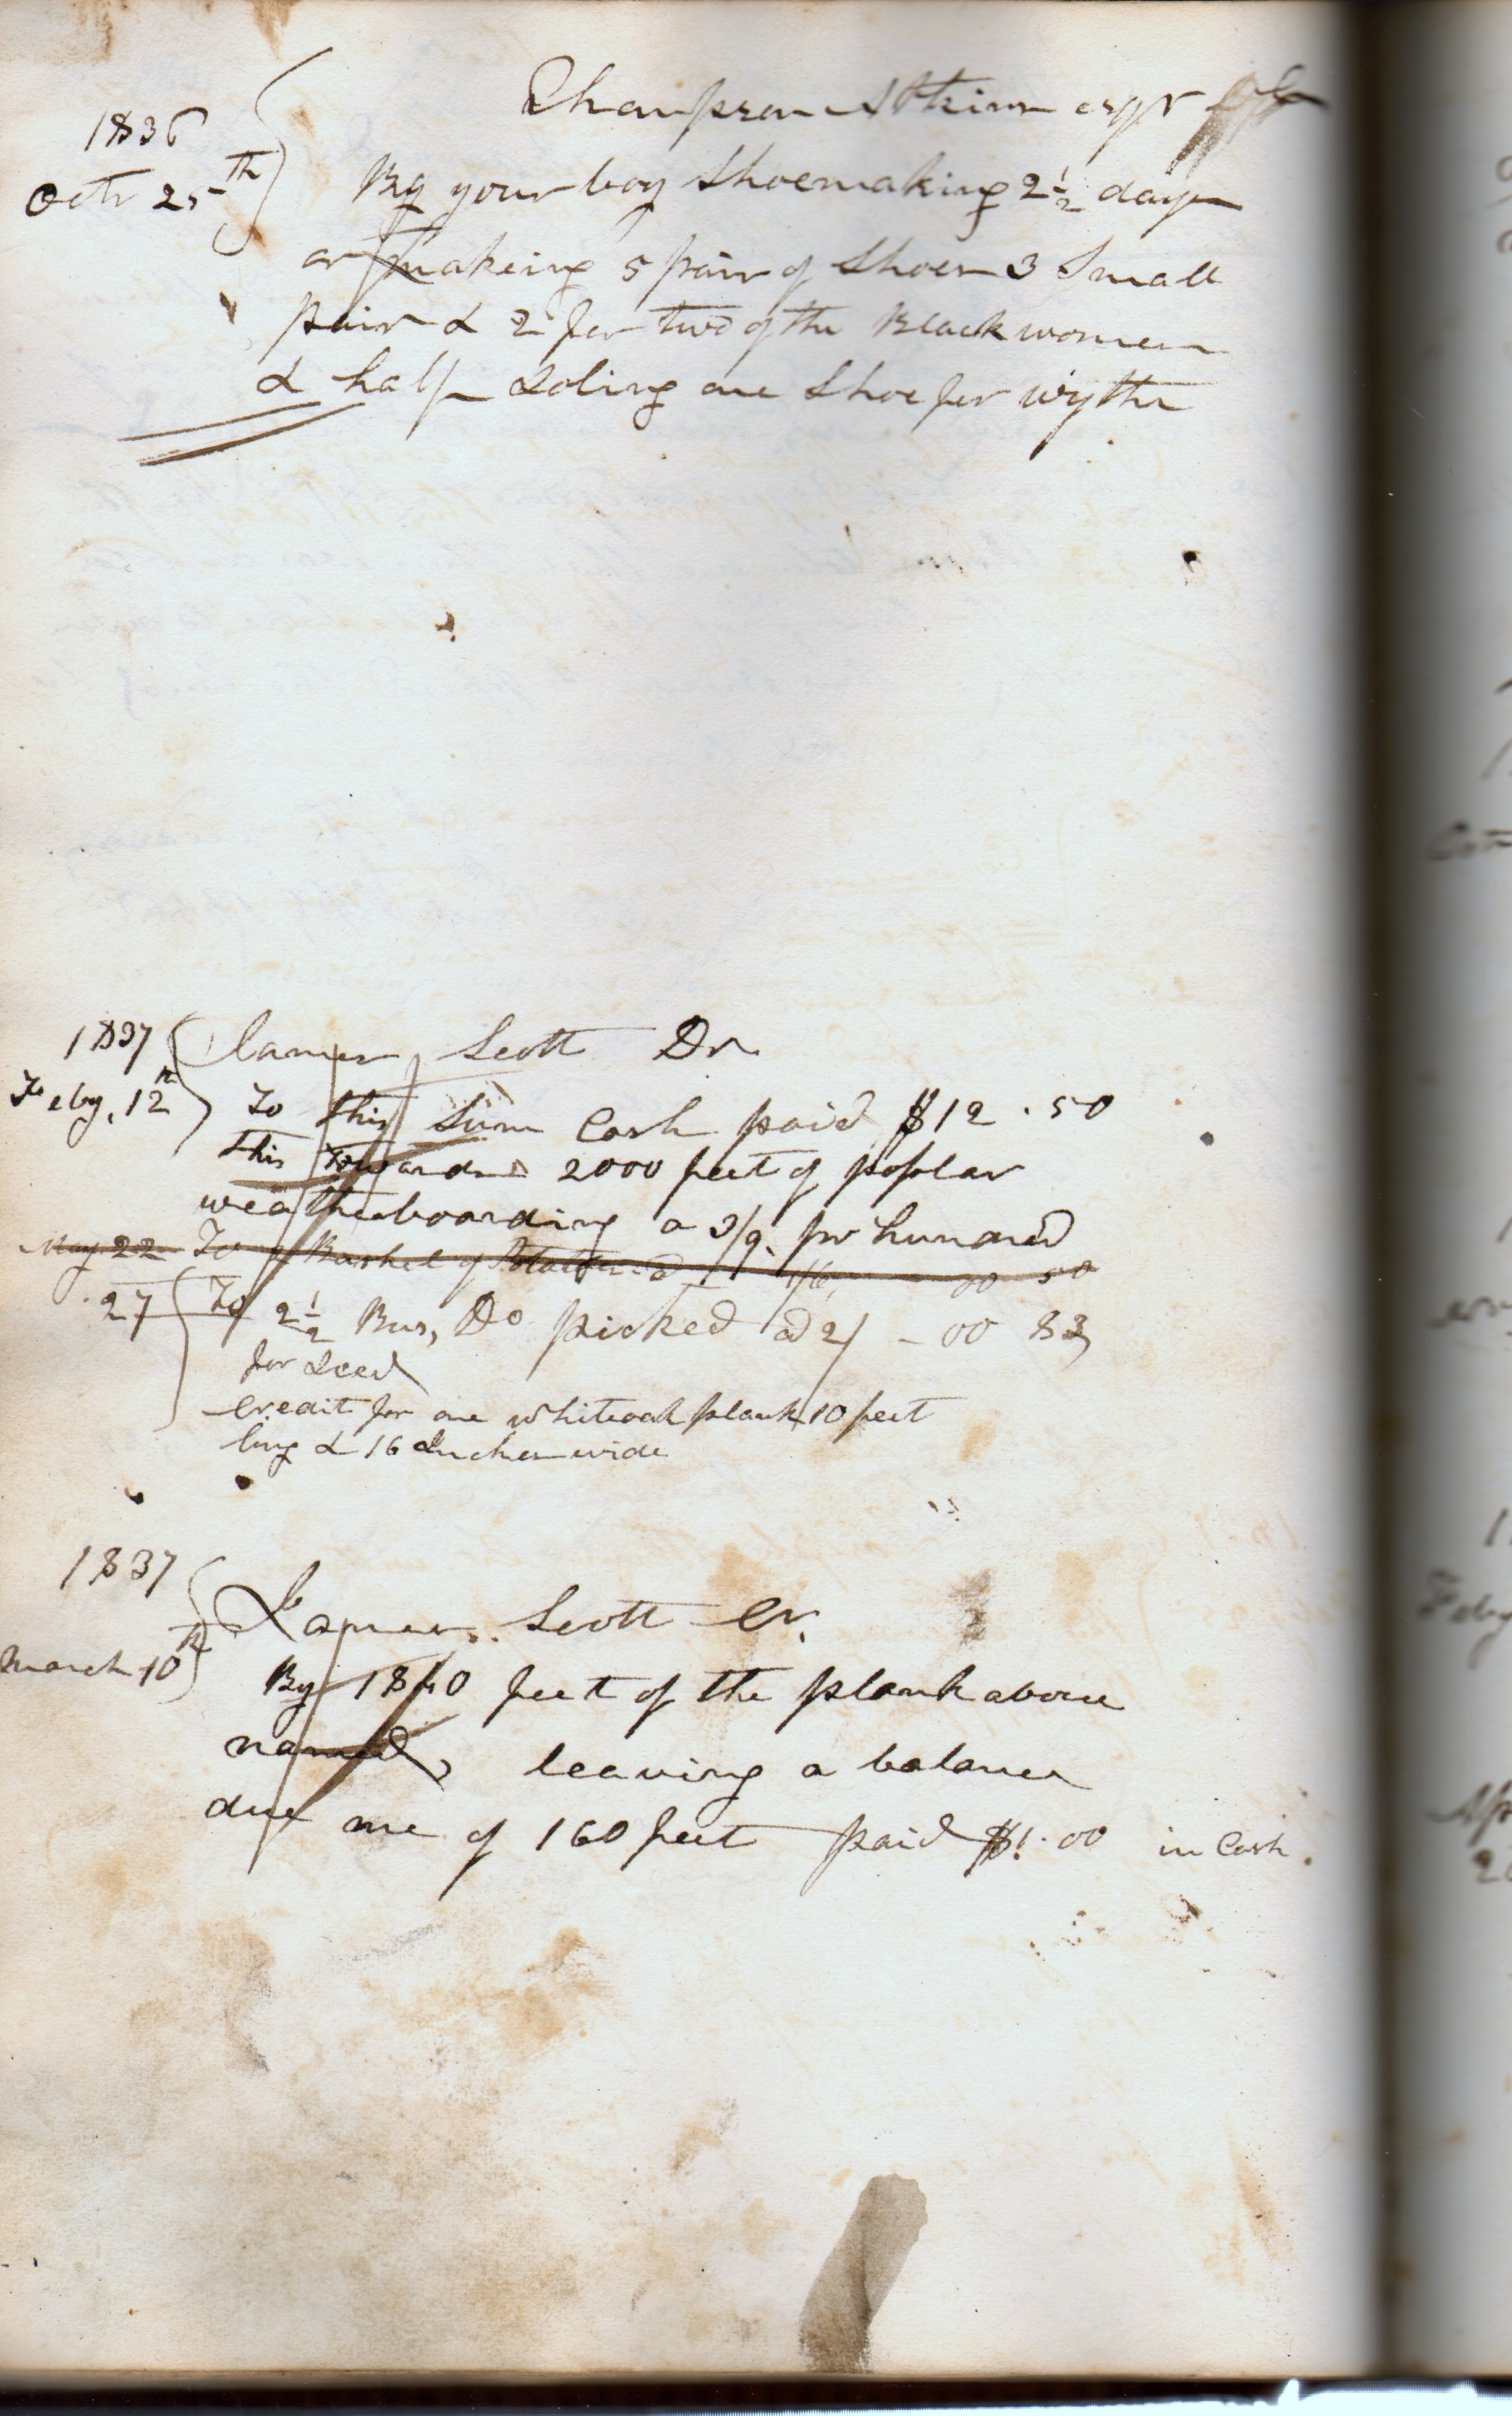 1836
Octr 25th
Champion Atkins esqr
By your boy Shoemaking 2½ days
or makeing 5 pair of Shoes 3 Small
pair & 2 for two of the Black women
& half Soling one Shoe for wythe
1837
Feby, 12th
James Scott Dr
To this Sum Cash paid $12.50
this towards 2000 feet of poplar
weatherboarding a 3/9. pr hundred
May 22 To 1 Bushel of Potatoes a 1/6, 00 50
27 To 2½ Bus, Do picked a 2/ - 00 83
for Seed
credit for one whiteoak plank 10 feet
long & 16 Inches wide
1837
March 10th
James Scott Cr.
By 1840 feet of the plank above
named, leaving a balance
due me of 160 feet paid $1.00 in Cash.